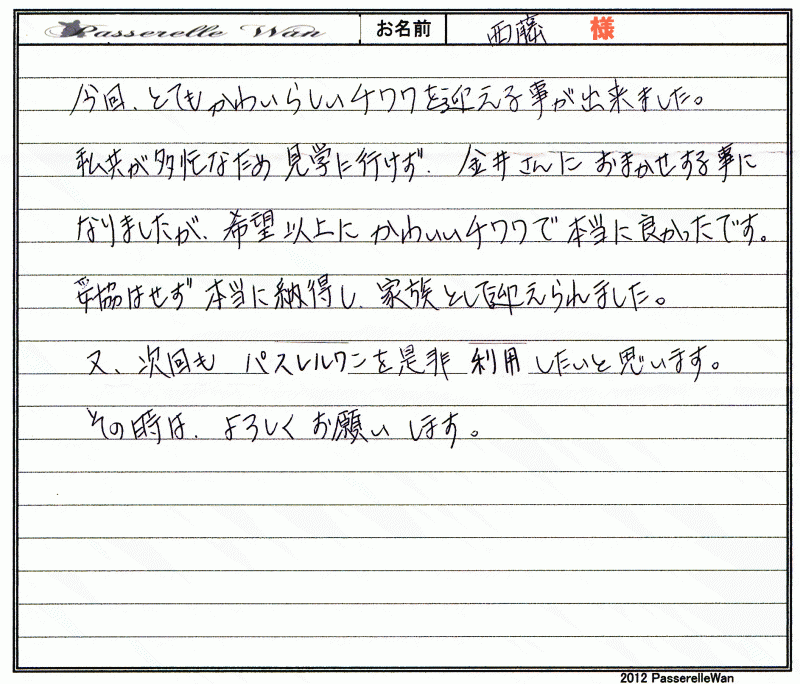 Passerelle Wan お名前 西藤 様
今回、とてもかわいらしいチワワを迎える事が出来ました。
私共が多忙なため見学に行けず、金井さんにおまかせする事に
なりましたが、希望以上にかわいいチワワで本当に良かったです。
妥協はせず本当に納得し、家族として迎えられました。
又、次回も パスレルワンを是非 利用 したいと思います。
その時は、よろしくお願いします。
2012 PasserelleWan